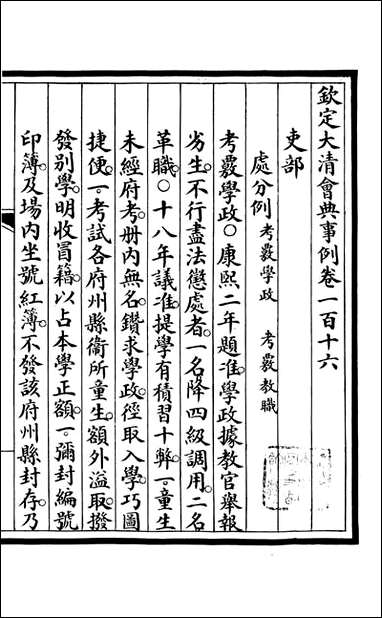 欽定大清會典事例卷一百十六
吏部
處分例考覈學政　考覈教職
考覈學政○康熙二年題准學政據教官舉報
劣生不行盡法懲處者一名降四級調用二名
革職○十八年議准提學有積習十弊一童生
未經府考冊內無名鑽求學政徑取入學巧圖
捷便一考試各府州縣衞所童生額外溢取撥
發別學明收冒籍以占本學正額一彌封編號
印簿及場內坐號紅簿不發該府州縣封存乃